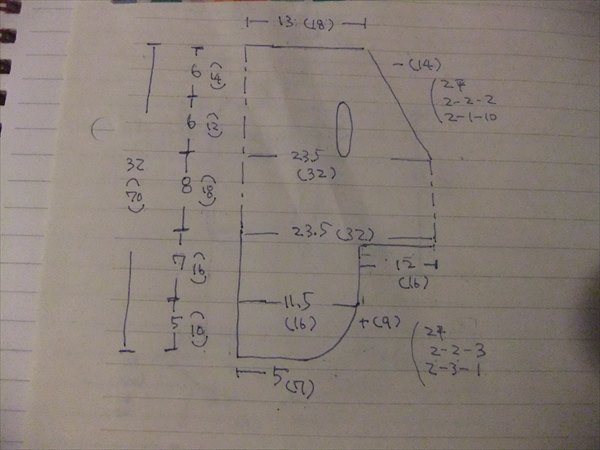 13 (18)
6
(14)
-(14)
2-2-2
2-1-10
6
(12)
23.5
(32)
32
(70)
8
(18)
23.5 (32)
7
(16)
12
(16)
11.5
(16)
5
(10)
+(9)
2-2-3
2-3-1
5